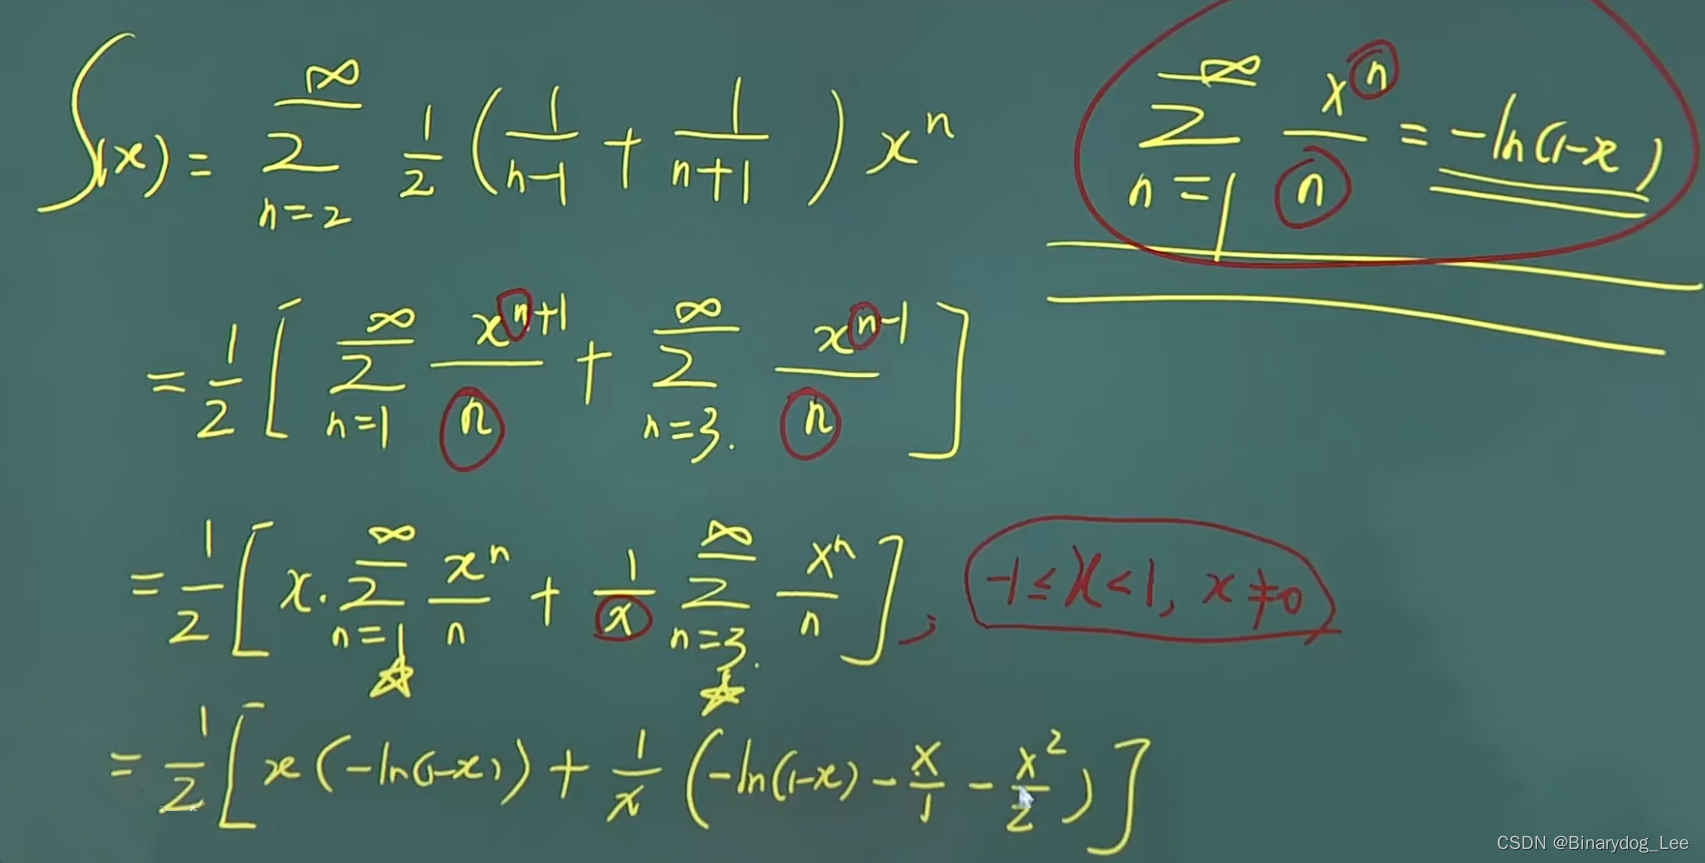 f(x) = ∑_{n=2}^{∞} 1/2 (1/(n-1) + 1/(n+1)) x^n
∑_{n=1}^{∞} x^n/n = -ln(1-x)
= 1/2 [ ∑_{n=1}^{∞} x^{n+1}/n + ∑_{n=3.}^{∞} x^{n-1}/n ]
= 1/2 [ x· ∑_{n=1}^{∞} x^n/n + 1/x ∑_{n=3.}^{∞} x^n/n ], -1≤x<1, x≠0
= 1/2 [ x(-ln(1-x)) + 1/x (-ln(1-x) - x/1 - x^2/2) ]
CSDN @Binarydog_Lee